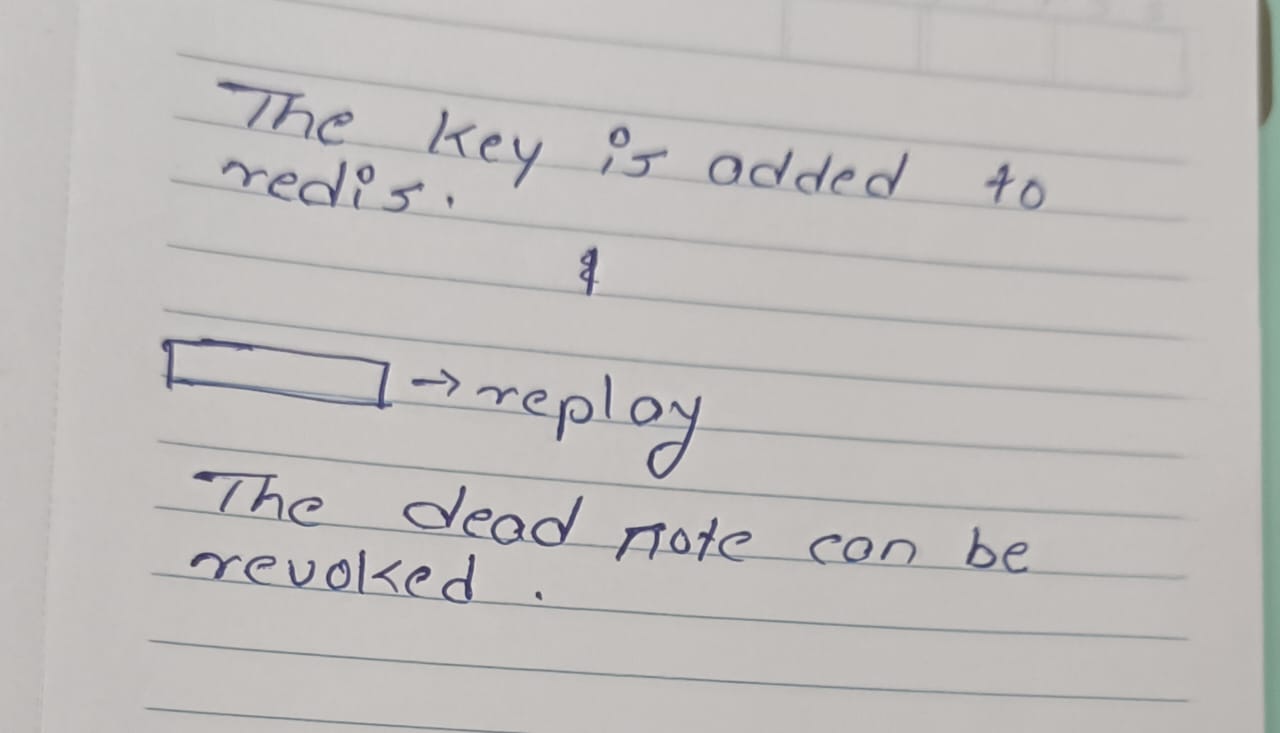 The key is added to
redis.
→ replay
The dead note can be
revoked.